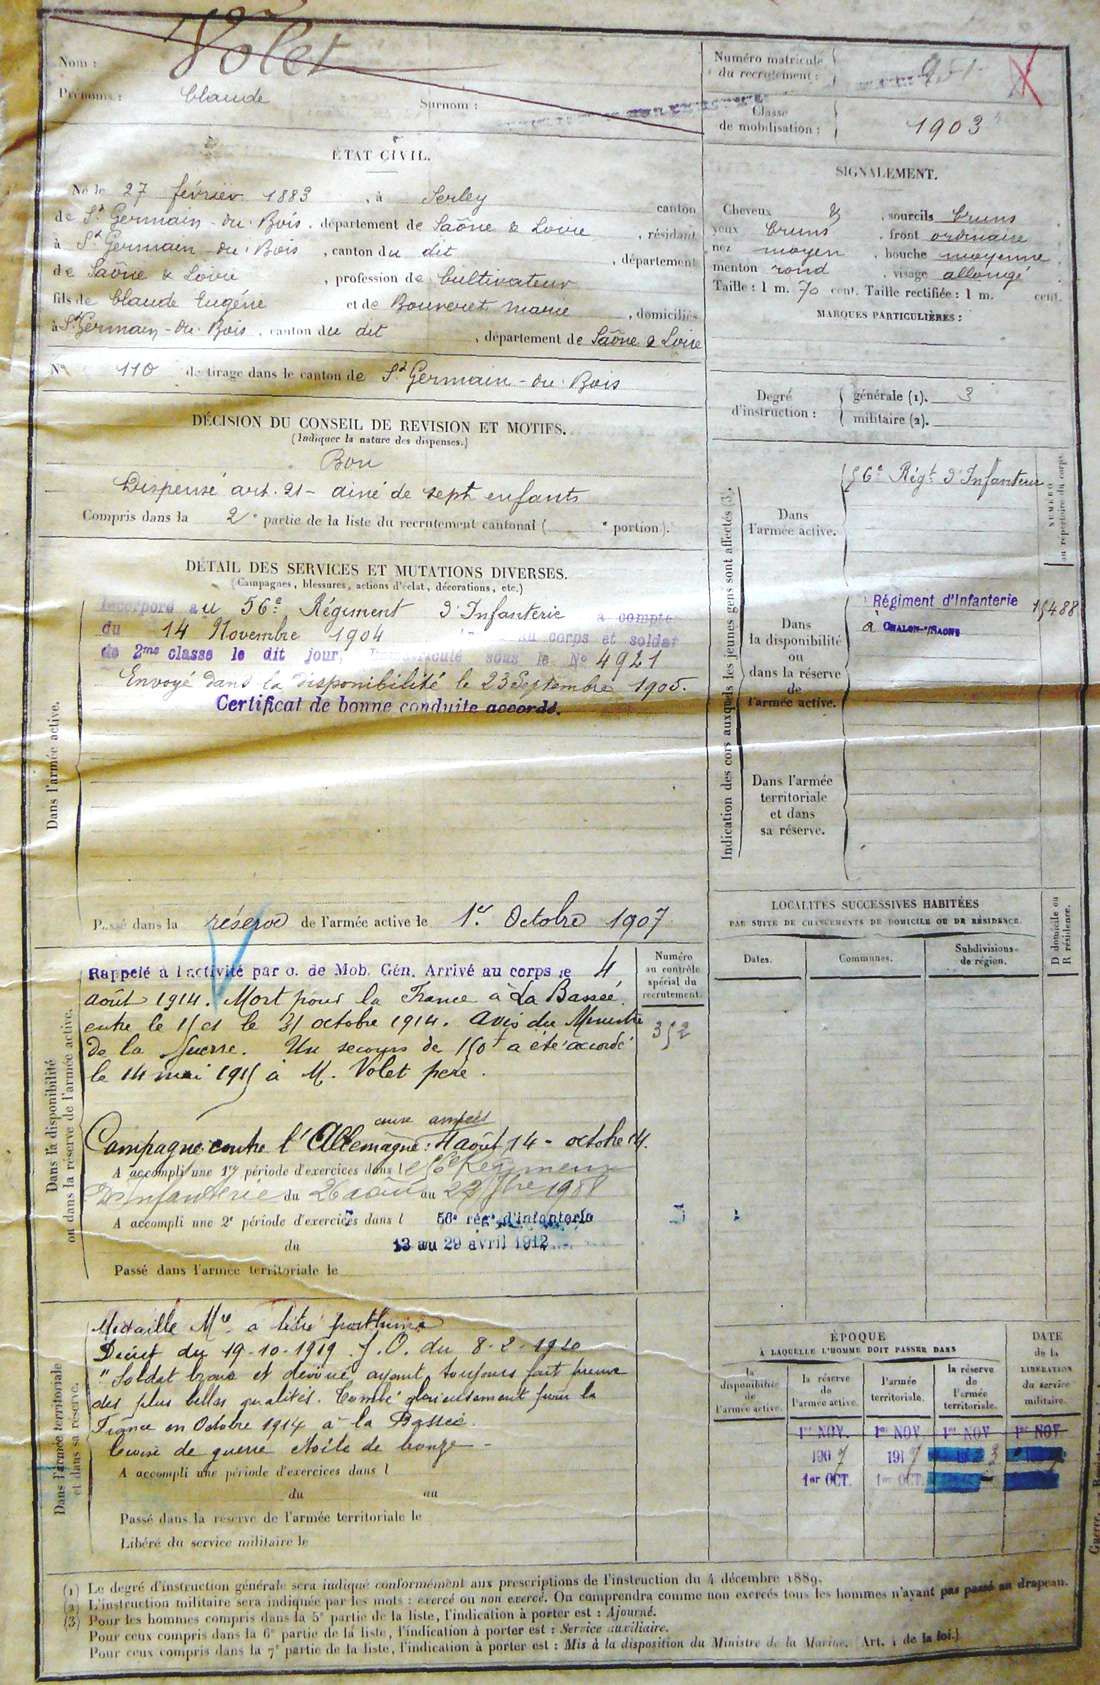 Nom : Volet
Prénoms : Claude Surnom :
Numéro matricule du recrutement : 951
Classe de mobilisation : 1903
ÉTAT CIVIL.
Né le 27 février 1883, à Serley canton
de St Germain-du-Bois, département de Saône & Loire, résidant
à St Germain-du-Bois, canton du dit, département
de Saône & Loire, profession de Cultivateur
fils de Claude Eugène et de Bouveret Marie, domiciliés
à St Germain-du-Bois, canton du dit, département de Saône & Loire
N° 110 de tirage dans le canton de St Germain-du-Bois
SIGNALEMENT.
Cheveux &, sourcils bruns
yeux bruns, front ordinaire
nez moyen, bouche moyenne
menton rond, visage allongé
Taille : 1 m. 70 cent. Taille rectifiée : 1 m. cent.
MARQUES PARTICULIÈRES :
Degré d'instruction : générale (1). 3
militaire (2).
DÉCISION DU CONSEIL DE REVISION ET MOTIFS.
(Indiquer la nature des dispenses.)
Bon
Dispensé art. 21 - aîné de sept enfants
Compris dans la 2e partie de la liste du recrutement cantonal ( e portion).
DÉTAIL DES SERVICES ET MUTATIONS DIVERSES.
(Campagnes, blessures, actions d'éclat, décorations, etc.)
Dans l'armée active.
Incorporé au 56e Régiment d'Infanterie à compter
du 14 Novembre 1904 au corps et soldat
de 2me classe le dit jour, Immatriculé sous le No 4921
Envoyé dans la disponibilité le 23 Septembre 1905.
Certificat de bonne conduite accordé.
Passé dans la réserve de l'armée active le 1er Octobre 1907
Indication des cors auxquels les jeunes gens sont affectés (3).
NUMÉRO au repertoire du corps.
Dans l'armée active.
56e Régt d'Infanterie
Dans la disponibilité ou dans la réserve de l'armée active.
Régiment d'Infanterie
à CHALON-S/SAONE
Dans l'armée territoriale et dans sa réserve.
LOCALITÉS SUCCESSIVES HABITÉES
PAR SUITE DE CHANGEMENTS DE DOMICILE OU DE RÉSIDENCE.
Dates. Communes. Subdivisions de région. D domicile ou R résidence.
Numéro au contrôle spécial du recrutement.
352
Dans la disponibilité ou dans la réserve de l'armée active.
Rappelé à l'activité par o. de Mob. Gén. Arrivé au corps le 4
août 1914. Mort pour la France à La Bassée
entre le 15 et le 31 octobre 1914. Avis du Ministre
de la Guerre. Un secours de 150f a été accordé
le 14 mai 1915 à M. Volet père.
Campagne contre l'Allemagne : 4 août 14 - octobre 14.
A accompli une 1re période d'exercices dans l 56e Régiment
d'Infanterie du 26 août au 22 7bre 1908
A accompli une 2e période d'exercices dans l 56e rég. d'infanterie
du 13 au 29 avril 1912
Passé dans l'armée territoriale le
Dans l'armée territoriale et dans sa réserve.
Médaille Mre à titre posthume
Décret du 19-10-1919 J.O. du 8-2-1920
"Soldat brave et dévoué ayant toujours fait preuve
des plus belles qualités. Tombé glorieusement pour la
France en Octobre 1914 à La Bassée.
Croix de guerre étoile de bronze -
A accompli une période d'exercices dans l
du au
Passé dans la réserve de l'armée territoriale le
Libéré du service militaire le
ÉPOQUE
À LAQUELLE L'HOMME DOIT PASSER DANS
DATE de la LIBÉRATION du service militaire.
la disponibilité de l'armée active.
la réserve de l'armée active.
l'armée territoriale.
la réserve de l'armée territoriale.
1er NOV. 1er NOV 1er NOV 1er NOV
1907 1917
1er OCT. 1er OCT.
(1) Le degré d'instruction générale sera indiqué conformément aux prescriptions de l'instruction du 4 décembre 1889.
(2) L'instruction militaire sera indiquée par les mots : exercé ou non exercé. On comprendra comme non exercés tous les hommes n'ayant pas passé au drapeau.
(3) Pour les hommes compris dans la 5e partie de la liste, l'indication à porter est : Ajourné.
Pour ceux compris dans la 6e partie de la liste, l'indication à porter est : Service auxiliaire.
Pour ceux compris dans la 7e partie de la liste, l'indication à porter est : Mis à la disposition du Ministre de la Marine. (Art. 4 de la loi.)